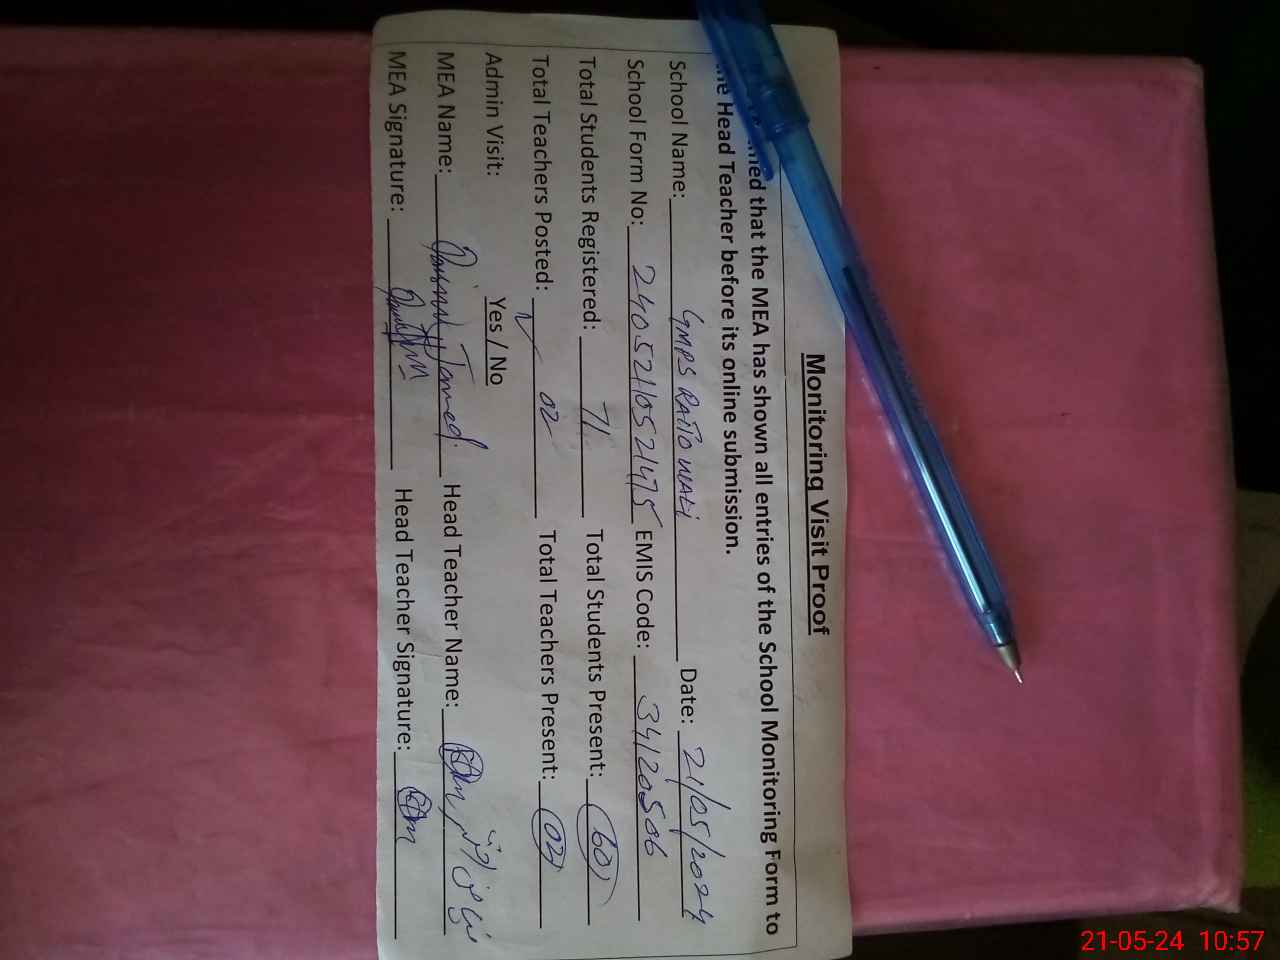 Monitoring Visit Proof
that the MEA has shown all entries of the School Monitoring Form to
Head Teacher before its online submission.
School Name: GMPS RAITO WALI Date: 21/05/2024
School Form No: 2405210521475 EMIS Code: 34120506
Total Students Registered: 71 Total Students Present: 60
Total Teachers Posted: 02 Total Teachers Present: 02
Admin Visit: Yes / No
MEA Name: Head Teacher Name:
MEA Signature: Head Teacher Signature:
21-05-24 10:57